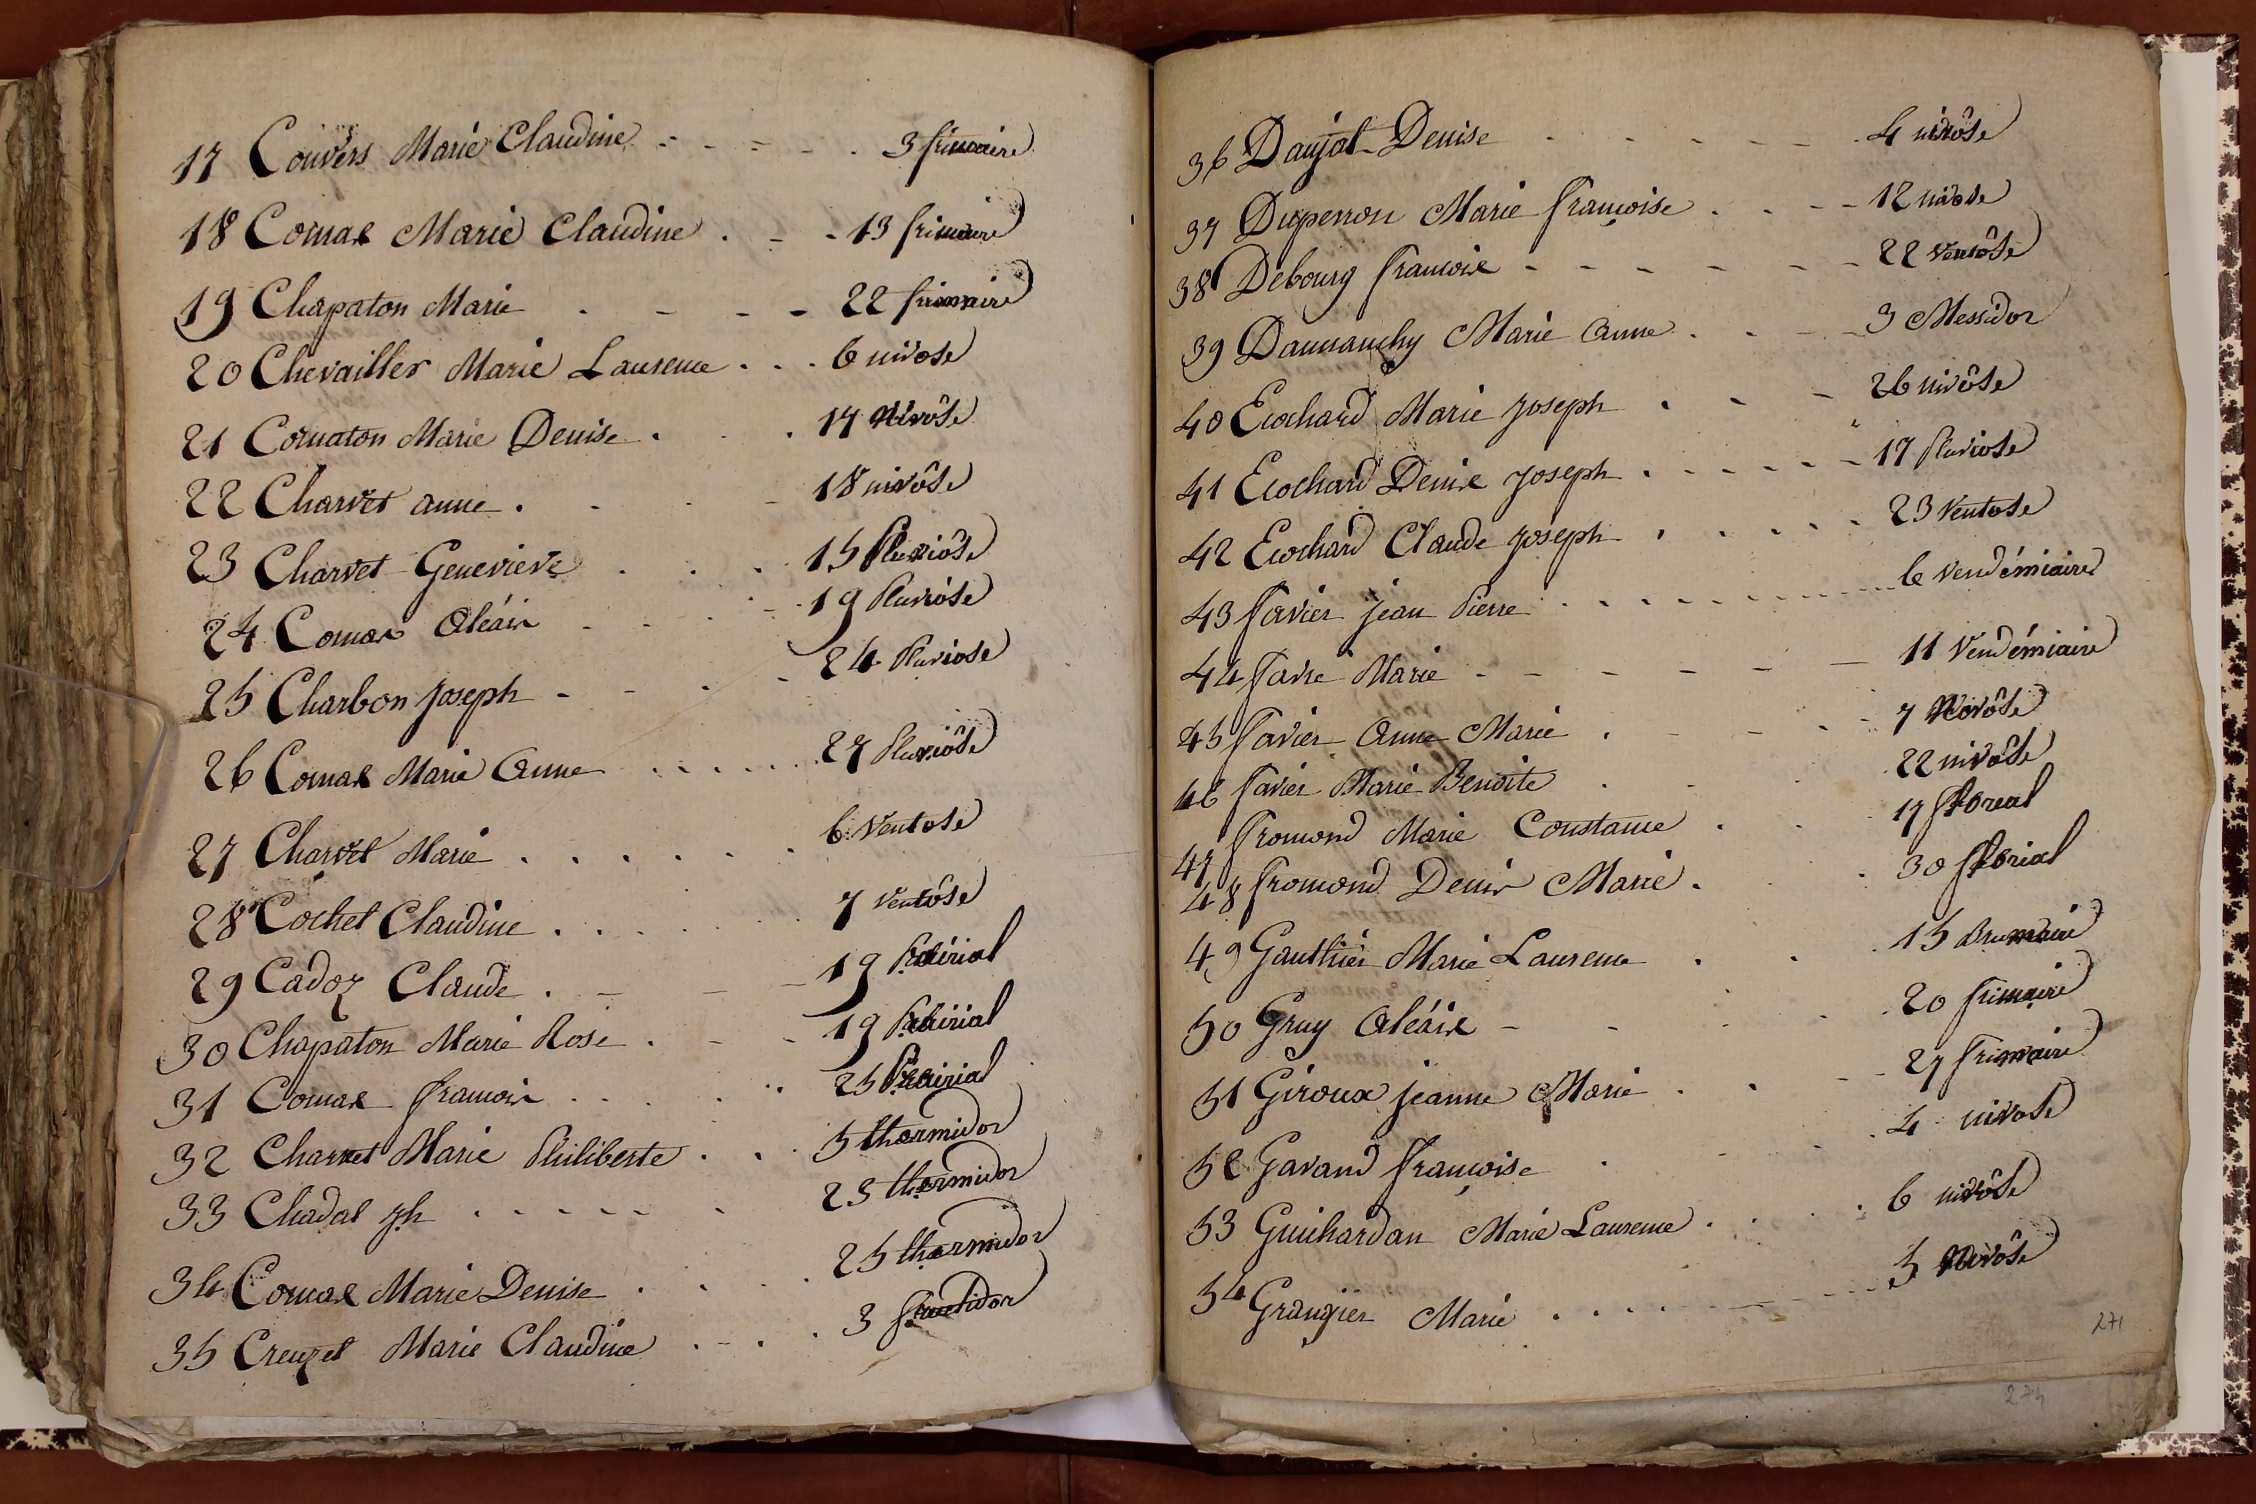 17 Convers Marie Claudine 3 frimaire
18 Cornax Marie Claudine 13 frimaire
19 Chapaton Marie 22 frimaire
20 Chevailler Marie Laurence 6 nivose
21 Cornaton Marie Denise 17 Nivôse
22 Charvet anne 18 nivôse
23 Charvet Genevieve 15 Pluviôse
24 Cornax Aléxis 19 Pluviôse
25 Charbon joseph 24 Pluviose
26 Cornax Marie Anne 27 Pluviôse
27 Charvet Marie 6 Ventose
28 Cochet Claudine 7 Ventôse
29 Cadoz Claude 19 Prairial
30 Chapaton Marie Rose 19 Prairial
31 Cornax francois 25 Prairial
32 Charvet Marie Philiberte 5 thermidor
33 Chadal jph 23 thermidor
34 Cornax Marie Denise 25 thermidor
35 Creuzet Marie Claudine 3 fructidor
36 Daujat Denise 4 nivôse
37 Duperron Marie françoise 12 nivose
38 Debourg francoise 22 Ventôse
39 Marie Anne 3 Messidor
40 Ecochard Marie joseph 26 nivôse
41 Ecochard Denise joseph 17 Pluviose
42 Ecochard Claude joseph 23 Ventose
43 favier jean Pierre 6 Vendémiaire
44 favre Marie 11 Vendémiaire
45 favier Anne Marie 7 Nivôse
46 favier Marie Benoite 22 nivôse
47 fromond Marie Constance 17 floreal
48 fromond Denis Marie 30 florial
49 Gauthier Marie Laurence 15 Brumaire
50 Gruy Aléxis 20 frimaire
51 Giroux jeanne Marie 27 frimaire
52 Gavand françoise 4 nivose
53 Guichardan Marie Laurence 6 nivôse
54 Grangier Marie 5 Nivôse
271